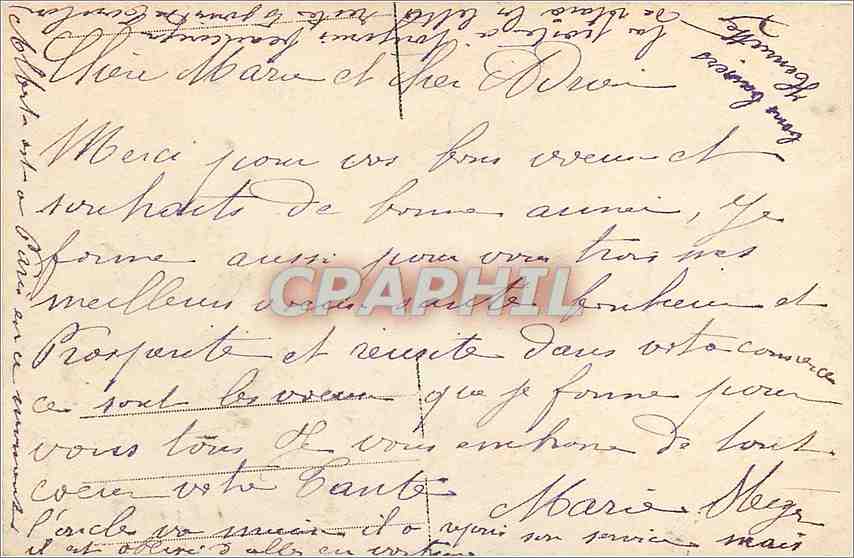 Chère Marie et cher Adrien
Merci pour vos bons voeux et
souhaits de bonne année, Je
forme aussi pour vous trois mes
meilleurs voeux santé bonheur et
CPARPHIL
Prosperité et réussite dans votre commerce
ce sont les voeux que je forme pour
vous tous Je vous embrasse de tout
coeur votre Tante
Marie
l'oncle va mieux il a repris son service mais
il est obligé d'aller en
Albert est a Paris en ce moment
bons baisers
Henriette